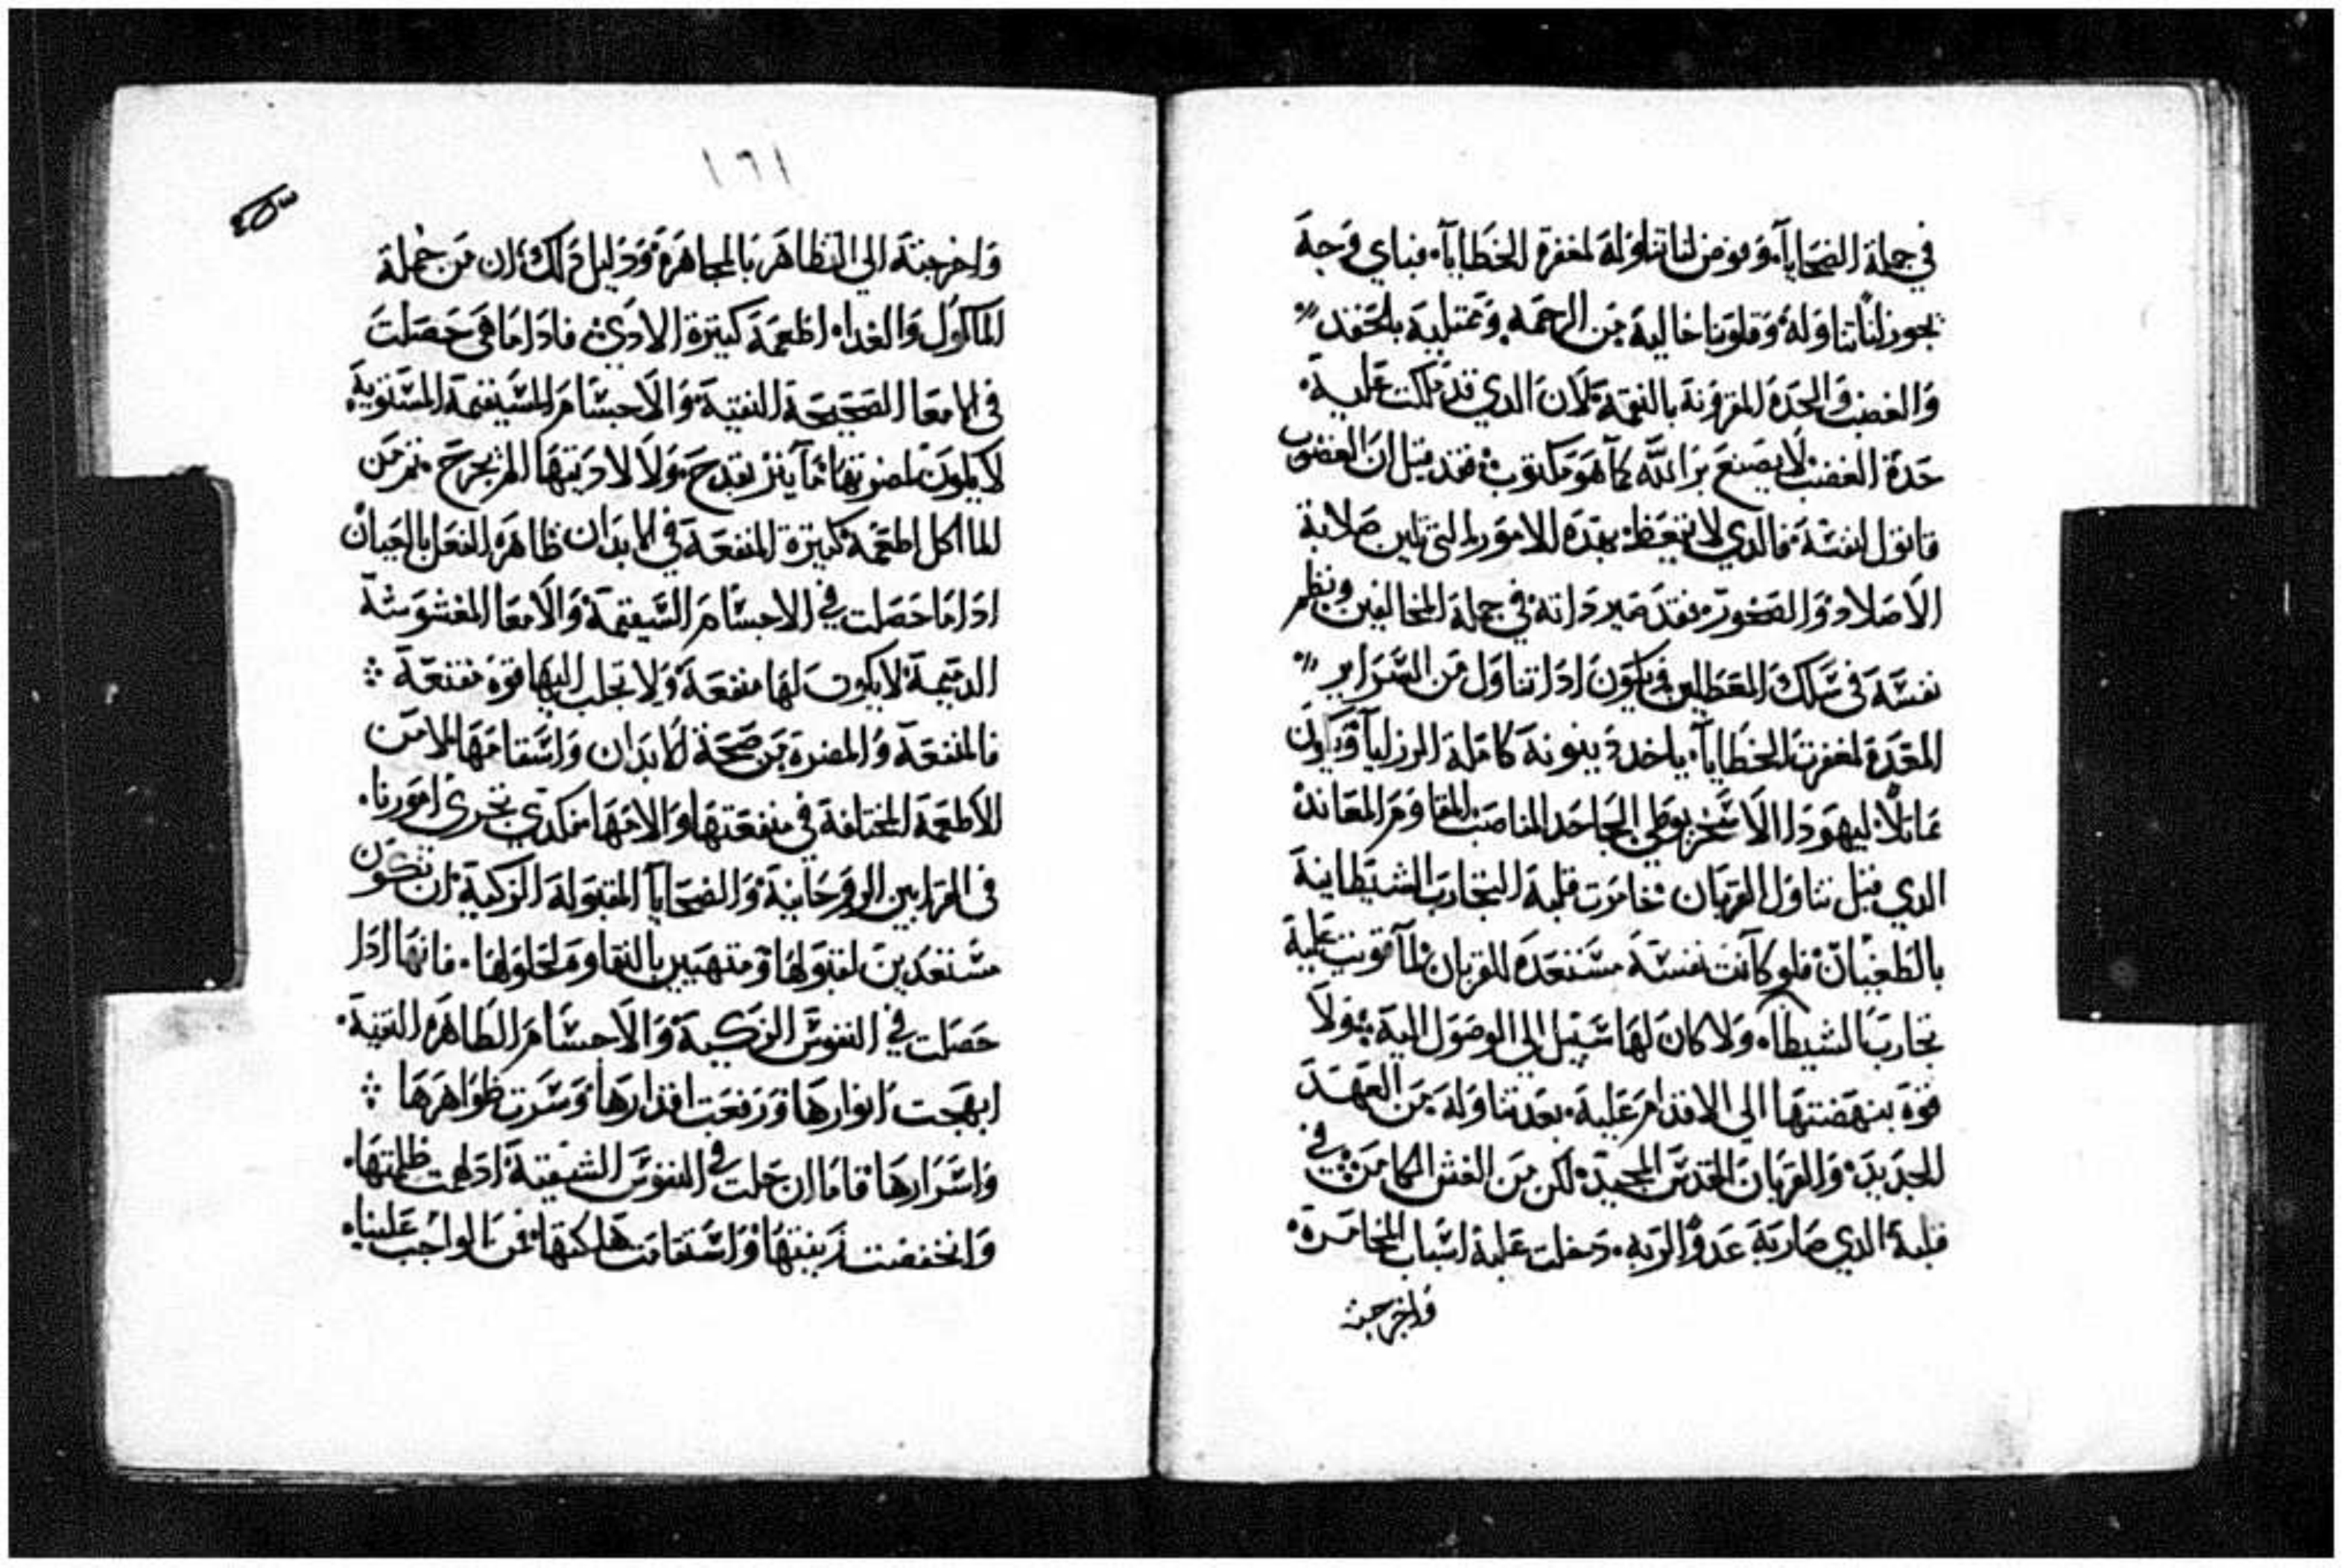 في جملة الضحايآ. وفوض لنا تناوله لمغفرة الخطايآ. فباي وجه
يجوز لنا تناوله وقلوبنا خالية من الرحمه وممتلية بالحقد
والغضب والحدة المقرونة بالنقمة لان الدي قد ملكت علية
حدة الغضب لا يصنع بر الله كما هو مكتوب فقد قيل ان الغضوب
قاتول لنفسة فالدي لا يتعظ بهده الامور التي تلين صلابة
الاصلاد والصخور فقد صير داته في جملة المخالفين ونظم
نفسة في سلك المعطلين فيكون ادا تناول من السراير
المعدة لمغفرت الخطايآ. ياخد دينونة كاملة الرزايآ ويكون
مماثلا ليهودا الاسخريوطي الجاحد المناصب المقاوم المعاند
الدي قبل تناول القربان خامرت قلبة التجارب الشيطانية
بالطغيان فلو كانت نفسة مستعدة للقربان لما قويت علية
تجارب الشيطان ولا كان لها سبيل الي الوصول الية ولا
قوة بنهضتها الي الاقدام علية. بعد تناولة من العهد
الجديد والقربان القدس المجيد لكن من الغش الكامن في
قلبة الدي ضاربة عدو البرية. دخلت علية اسباب المخامرة
واخرجتة
١٦١
واخرجتة الي التظاهر بالمجاهرة ودليل دلك ان من جملة
الماكول والغدا. اطعمة كتيرة الادي فادا ما هي حصلت
في الامعا الصحيحة النقية والاجسام المستقيمة المستوية
لا يكون لمضرتها تاتير يقدح ولا لاديتها المر يجرح. تم من
الماكل اطعمة كتيرة المنفعة في الابدان ظاهرة الفعل بالعيان
ادا ما حصلت في الاجسام السقيمة والامعا المغشوشة
الدميمة لا يكون لها منفعة ولا تجلب اليها قوة مقنعة
فالمنفعة والمضرة من صحة الابدان واسقامها لا من
الاطعمة المختلفة في منفعتها والامها فكدي تجري امورنا.
في القرابين الروحانية والضحايا المقبولة الزكية ان نكون
مستعدين لقبولها ومتهيين بالنقاوة لحلولها. فانها ادا
حصلت في النفوس الزكية والاجسام الطاهرة النقية.
ابهجت انوارها ورفعت اقدارها وسرت ظواهرها
واسرارها فاما ان حلت في النفوس الشقية ادلهمت ظلمتها.
وانخفضت زينتها واستفاقت هلكتها فمن الواجب علينا.